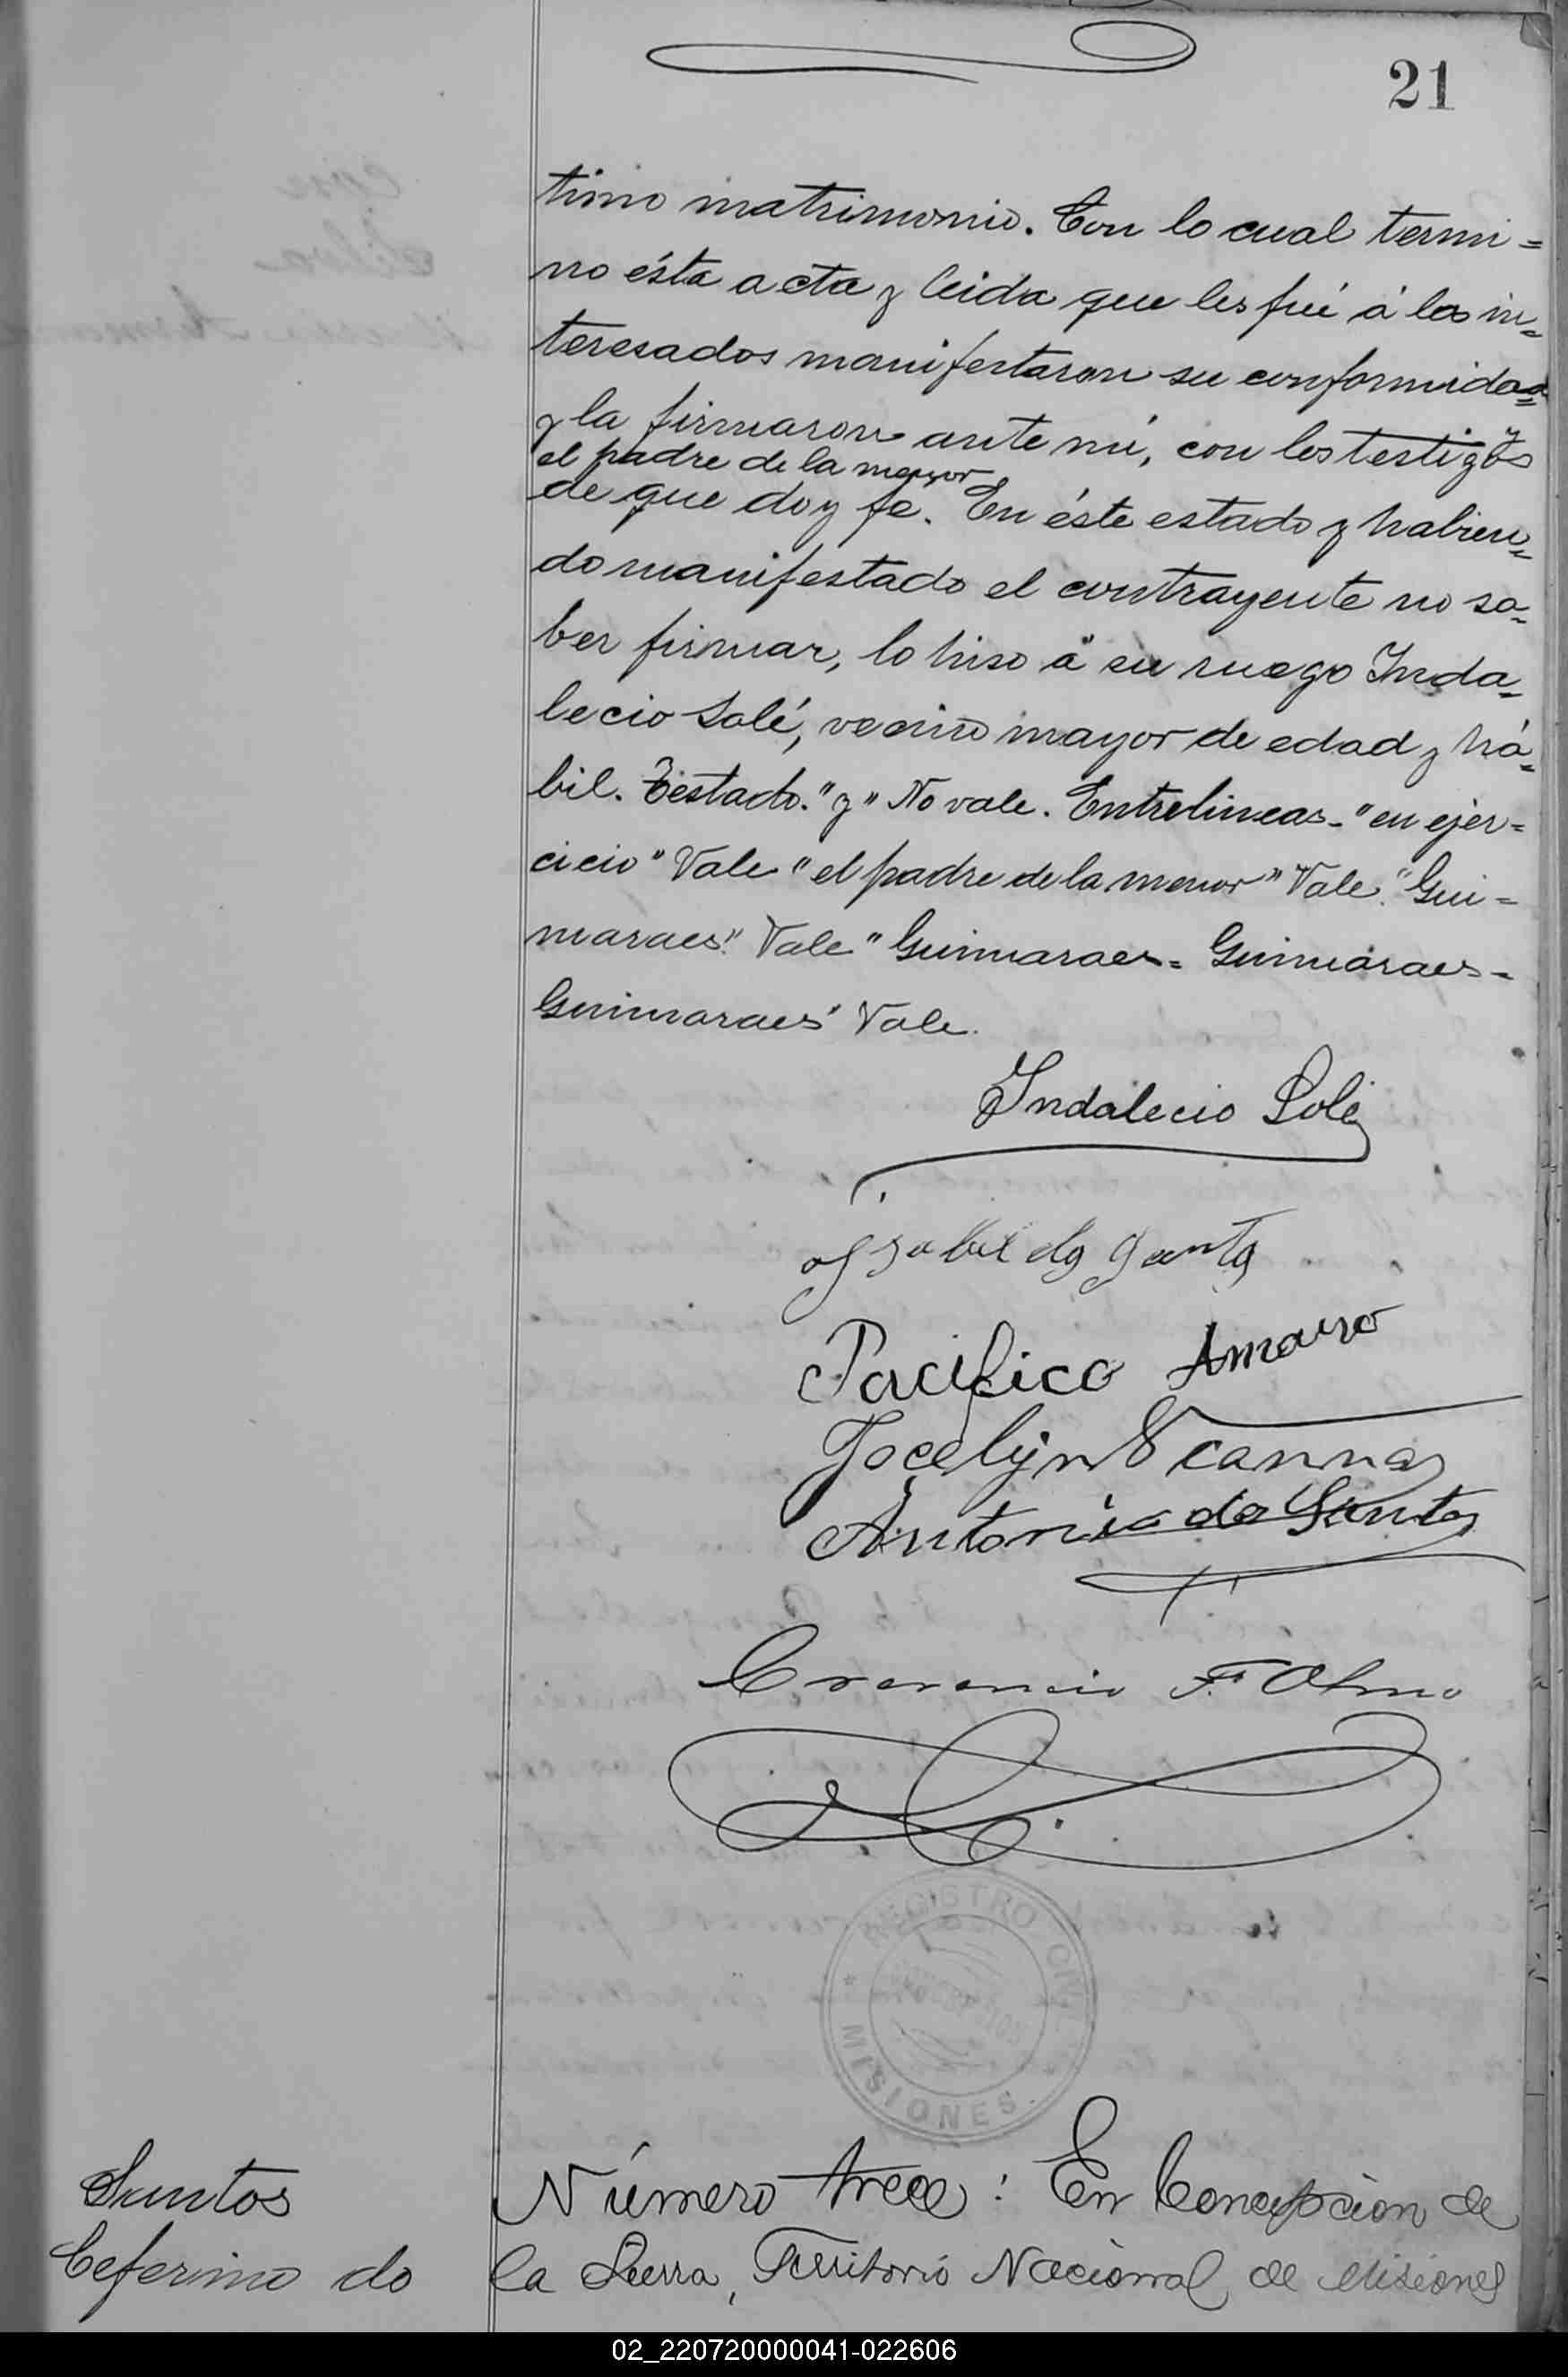 21
timo matrimonio. Con lo cual termi=
no ésta acta y leida que les fué á los in=
teresados manifestaron su conformidad
y la firmaron ante mí, con los testigos y
el padre de la menor
de que doy fe. En éste estado y habien=
do manifestado el contrayente no sa=
ber firmar, lo hiso á su ruego Inda=
lecio Solé, vecino mayor de edad y há=
bil. Testado. "y" No vale. Entrelineas - "en ejer=
cicio" Vale "el padre de la menor" Vale. "Gui=
maraes" Vale "Guimaraes = Guimaraes =
Guimaraes" Vale.
Indalecio Solé
Pacifico Amaro
Jocelyn
Antonio do Santos
F. Olmo
REGISTRO CIVIL
MISIONES
Santos
Ceferino do
Número trece: En Concepcion de
la Sierra, Territorio Nacional de Misiones
02_220720000041-022606